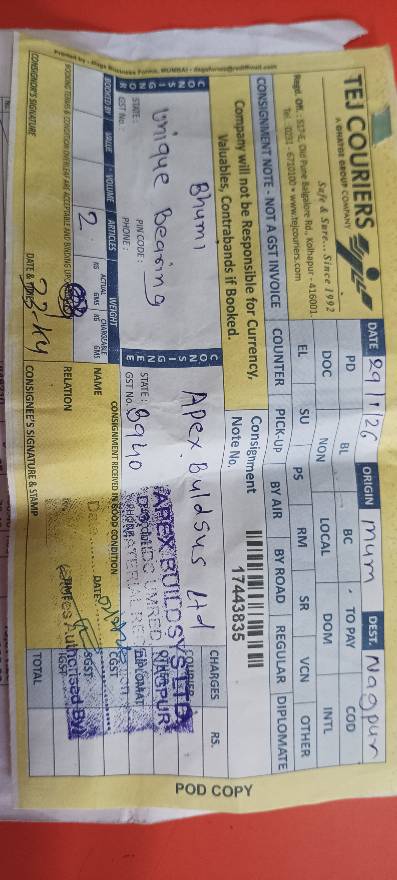 Printed by - Mega Business Forms, MUMBAI
TEJ COURIERS
A GHATGE GROUP COMPANY
Safe & Sure... Since 1992
Regd. Off. : 517-E, Old Pune Bangalore Rd., Kolhapur - 416001.
Tel. : 0231 - 6710100 • www.tejcouriers.com
CONSIGNMENT NOTE - NOT A GST INVOICE
Company will not be Responsible for Currency,
Valuables, Contrabands if Booked.
DATE 29/1/26 ORIGIN mum DEST. Nagpur
PD BL BC TO PAY COD
DOC NON LOCAL DOM INTL
EL SU PS RM SR VCN OTHER
COUNTER PICK-UP BY AIR BY ROAD REGULAR DIPLOMATE
Consignment
Note No.
17443835
CONSIGNOR
Bhumi
Unique Bearing
STATE : PIN CODE :
GST No. : PHONE :
CONSIGNEE
Apex Buldsys Ltd
STATE :
GST No. 9940
CHARGES RS.
BOOKED BY VALUE VOLUME ARTICLES WEIGHT
ACTUAL CHARGEABLE
KG GMS KG GMS
2
BOOKING TERMS & CONDITION OVERLEAF ARE ACCEPTANCE AND BINDING UPON
CONSIGNOR'S SIGNATURE DATE & TIME
CONSIGNMENT RECEIVED IN GOOD CONDITION
NAME DATE
RELATION TIME
CONSIGNEE'S SIGNATURE & STAMP
APEX BUILDSYS LTD
NAGPUR
Authorised By
CGST
SGST
IGST
TOTAL
POD COPY